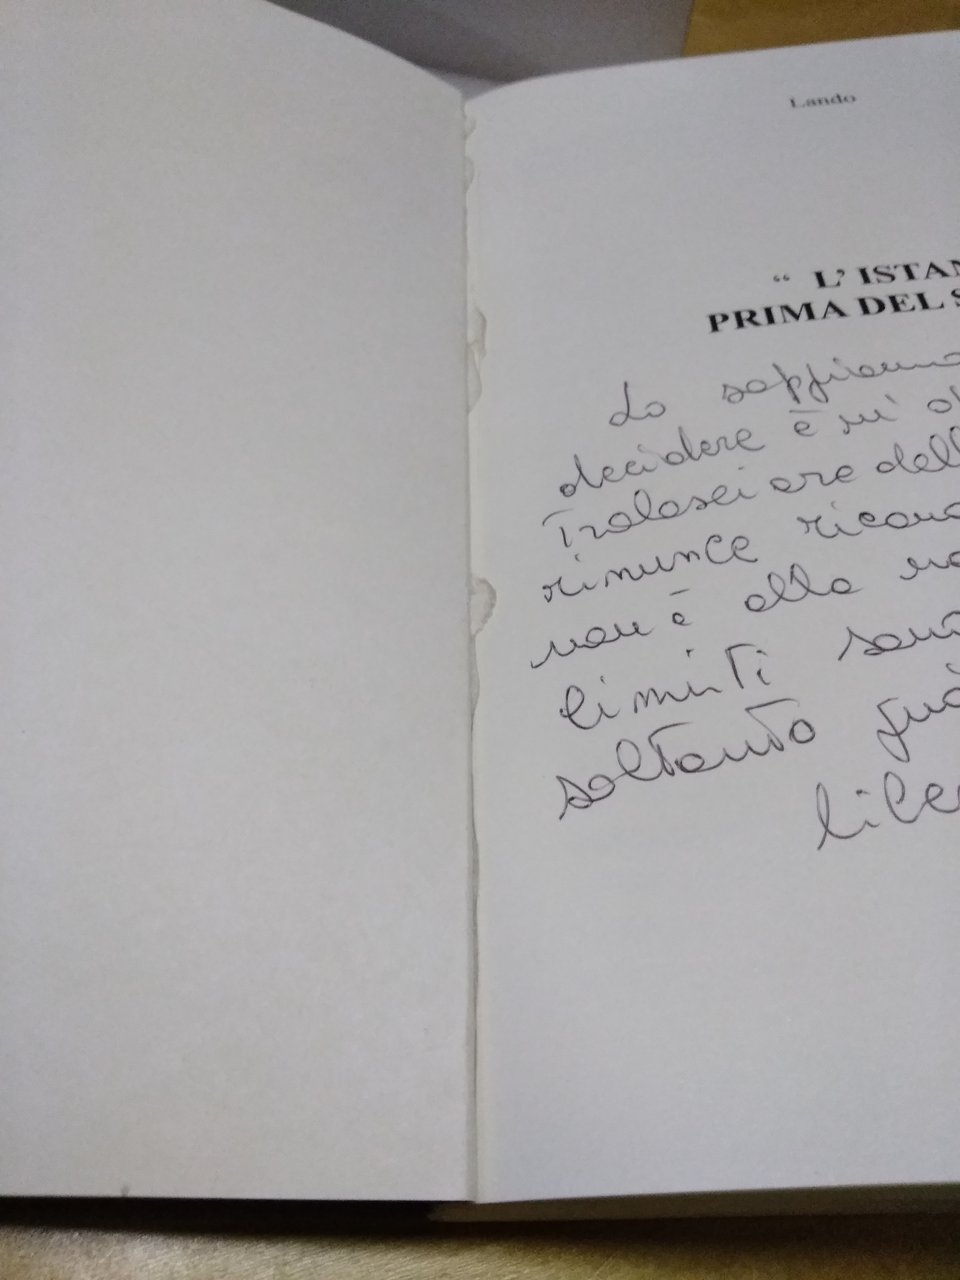 Lando
“ L’ ISTAN
PRIMA DEL S
Lo sappiamo
decidere è
Tralasciare dell
rinunce ricono
non è alla
limiti
soltanto può